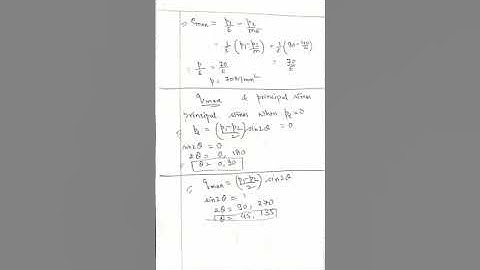 ⇒ emax = p1/E - p2/mE
= 1/E (p1 - p2/m) = 1/E (90 - 40/
p/E = 70/E = 70/E
p = 70 N/mm²
qmax & principal stress
principal stress when pt=0
pt = (p1-p2/2) sin2θ = 0
sin2θ = 0
2θ = 0, 180
θ = 0, 90
qmax = (p1-p2/2) sin2θ
sin2θ = 1
2θ = 90, 270
θ = 45, 135